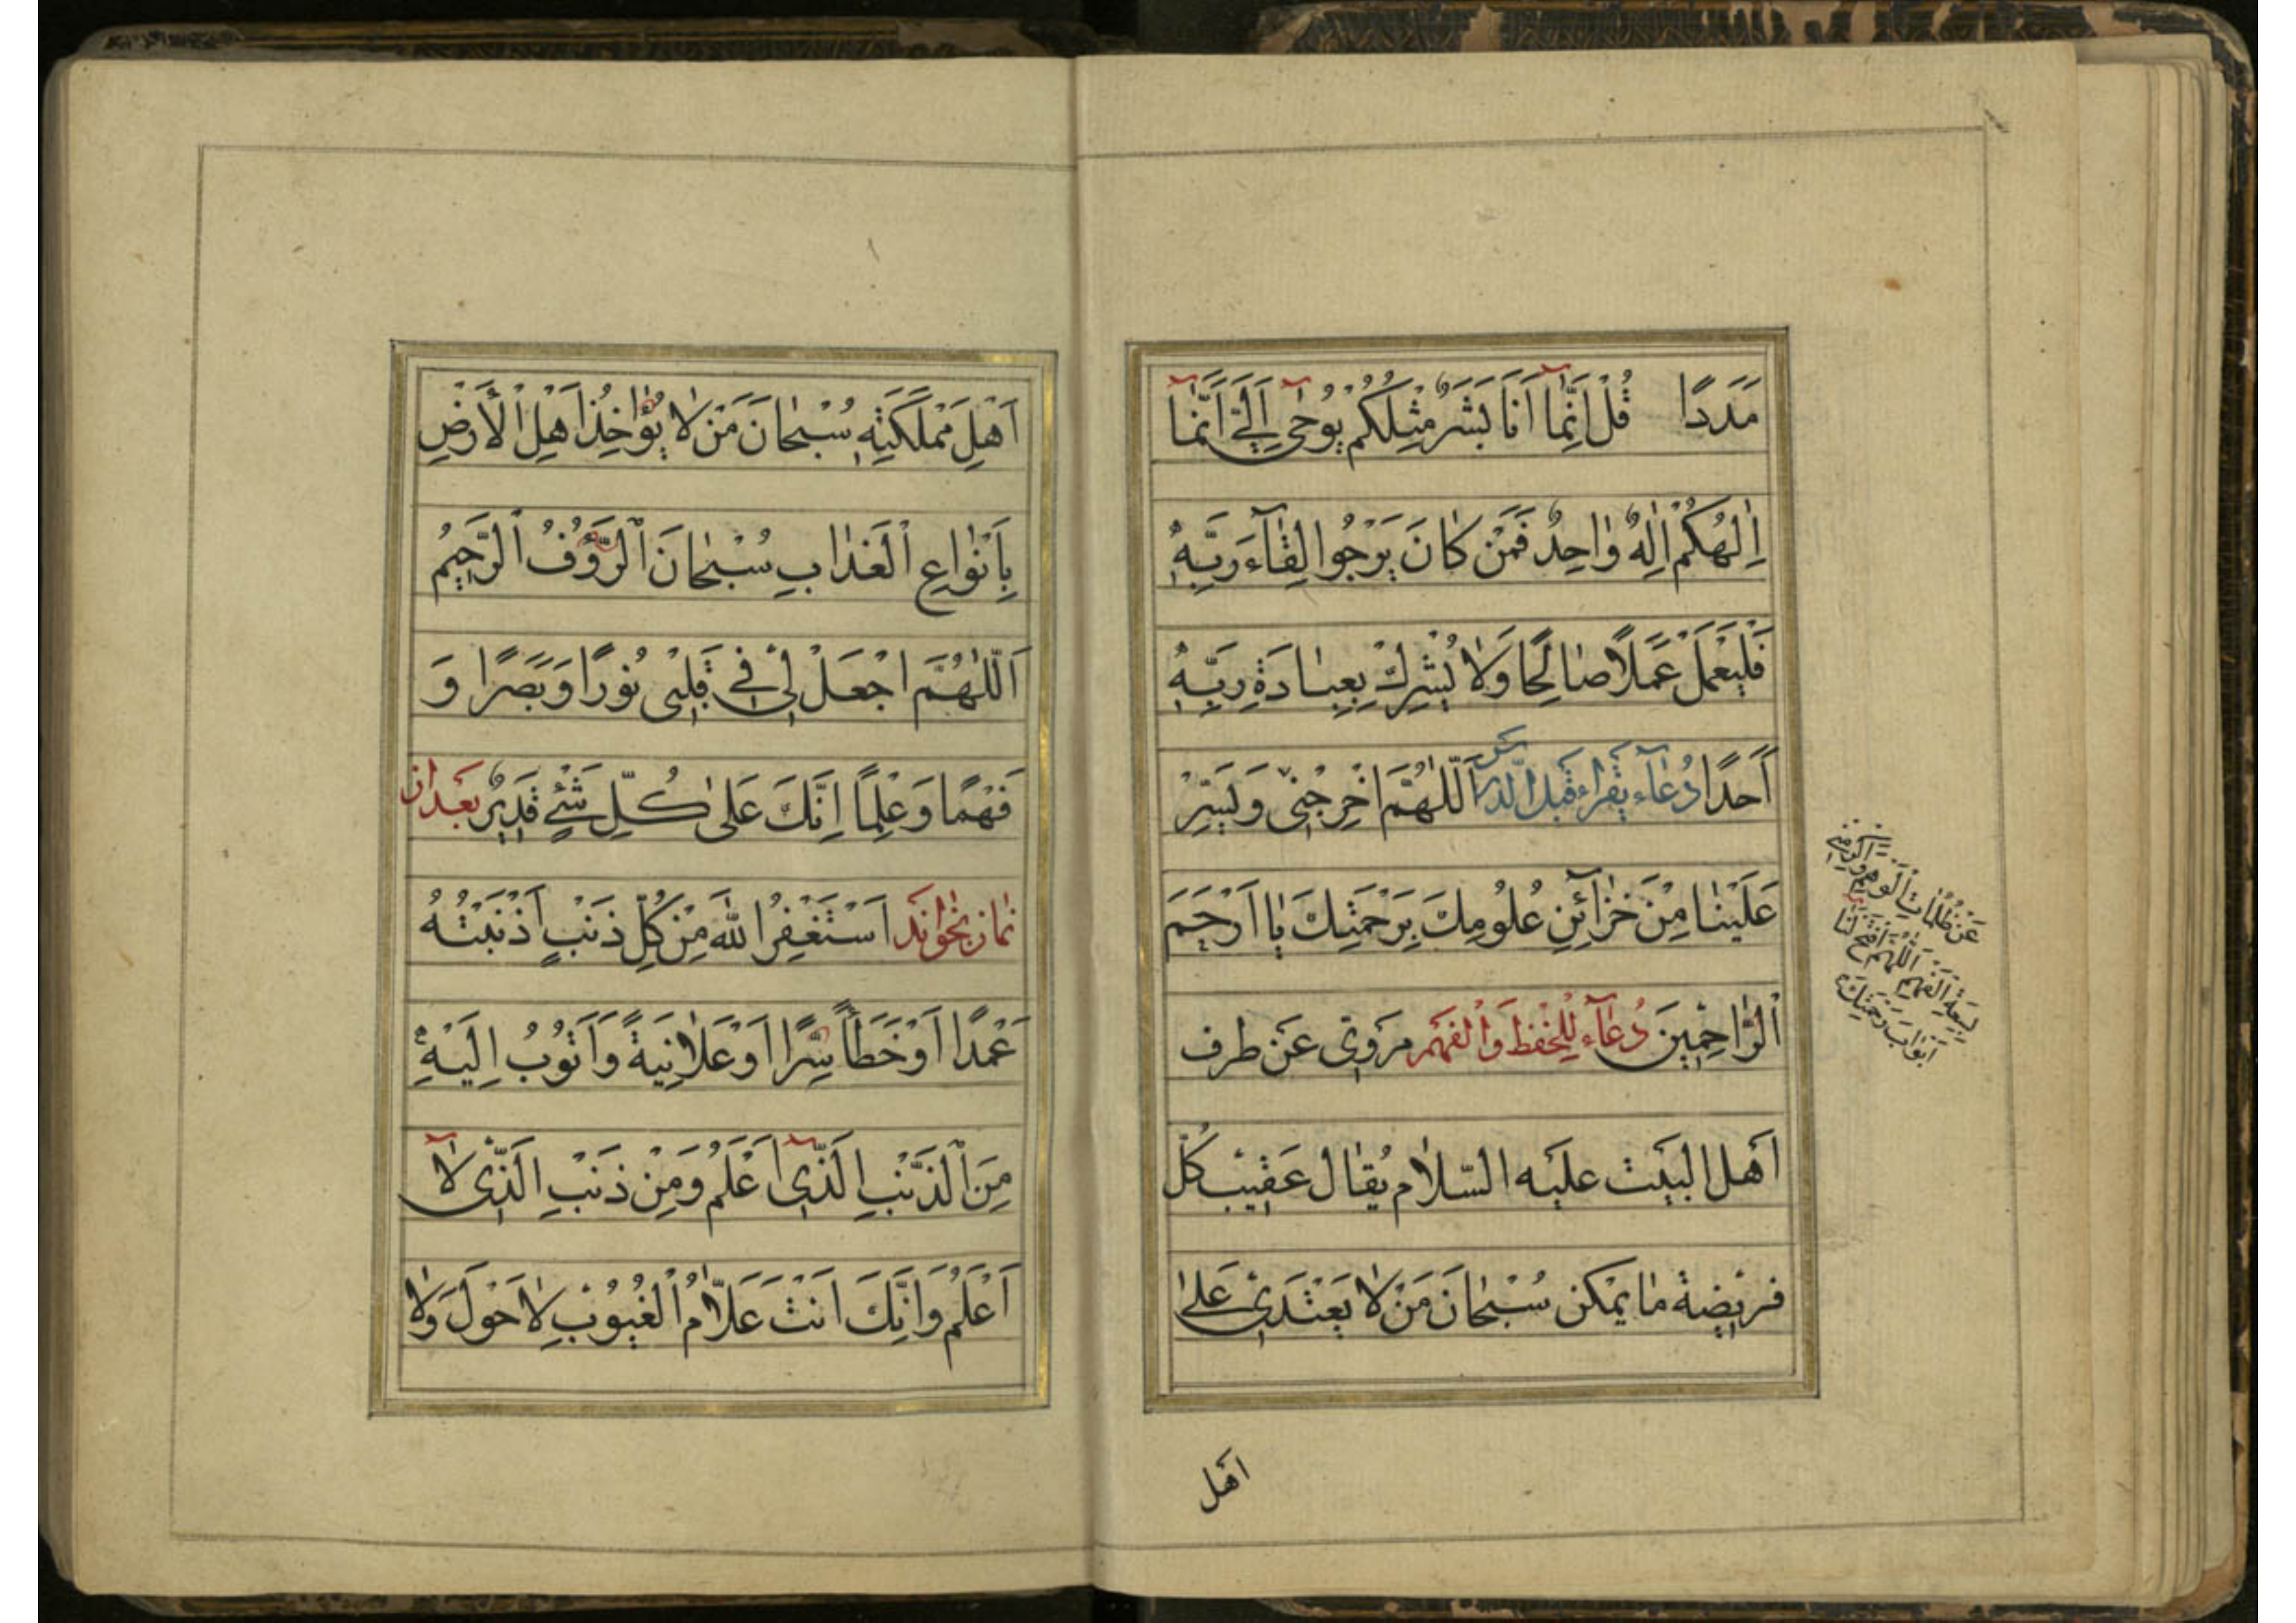 مَدَدًا قُلْ اِنَّمٰا اَنَا بَشَرٌ مِثْلُكُمْ يُوحٰى اِلَيَّ اَنَّمٰا
اِلٰهُكُمْ اِلٰهٌ وٰاحِدٌ فَمَنْ كٰانَ يَرْجُوا لِقٰآءَ رَبِّهٖ
فَلْيَعْمَلْ عَمَلًا صٰالِحًا وَلٰا يُشْرِكْ بِعِبٰادَةِ رَبِّهٖ
اَحَدًا دُعٰآء يقراء قَبلَ الدرس اَللّٰهُمَّ اَخْرِجْنِى وَيَسِّرْ
عَلَيْنٰا مِنْ خَزٰآئِنِ عُلُومِكَ بِرَحْمَتِكَ يٰا اَرْحَمَ
الرّٰاحِمِينَ دُعٰآء لِلْحِفْظِ وَالْفَهْمِ مَروِىّ عَنْ طرف
اَهل البَيت عليَه السّلام يُقٰال عَقيب كلّ
فريضة مٰا يمكن سُبْحٰانَ مَنْ لٰا يَعْتَدِى عَلىٰ
عَنْ ظُلُمٰاتِ الْوَهْمِ وَ
اَللّٰهُمَّ افْتَحْ لَنٰا
اَبْوٰابَ رَحْمَتِكَ
اهل
اَهْلِ مَمْلَكَتِهٖ سُبْحٰانَ مَنْ لٰا يُؤٰاخِذُ اَهْلَ الْاَرْضِ
بِاَنْوٰاعِ الْعَذٰابِ سُبْحٰانَ الرَّؤُفُ الرَّحِيمُ
اَللّٰهُمَّ اجْعَلْ لِى فِى قَلْبِى نُورًا وَبَصَرًا وَ
فَهْمًا وَعِلْمًا اِنَّكَ عَلىٰ كُلِّ شَيْءٍ قَدِيرٌ بَعَد ازان
نماز بخوٰاند اَسْتَغْفِرُ اللهَ مِنْ كُلِّ ذَنْبٍ اَذْنَبْتُهُ
عَمْدًا اَوْ خَطَأً سِرًّا اَوْ عَلٰانِيَةً وَاَتُوبُ اِلَيْهِ
مِنَ الذَّنْبِ الَّذِى اَعْلَمُ وَمِنْ ذَنْبِ الَّذِى لٰا
اَعْلَمُ وَاِنَّكَ اَنْتَ عَلّٰامُ الْغُيُوبِ لٰا حَوْلَ وَلٰا